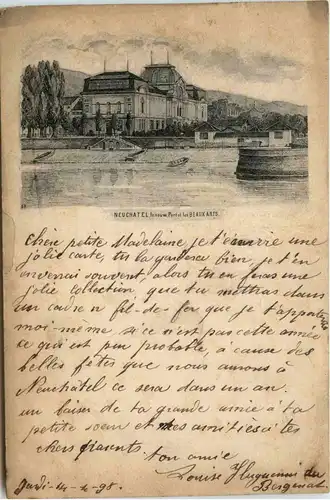 NEUCHATEL Port et les BEAUX ARTS.
Chère petite Madelaine je t'envoie une
jolie carte, tu la gardera bien, je t'en
enverrai souvent, alors tu en feras une
jolie collection, que tu mettras dans
un cadre n fil-de-fer que je t'apporterai
moi-même si ce n'est pas cette année
ce qui est peu probable, à cause des
belles fêtes que nous aurons à
Neuchâtel ce sera dans un an.
un baiser de ta grande amie à ta
petite soeur et mes amitiés à tes
chers parents
ton amie
Louise Huguenin